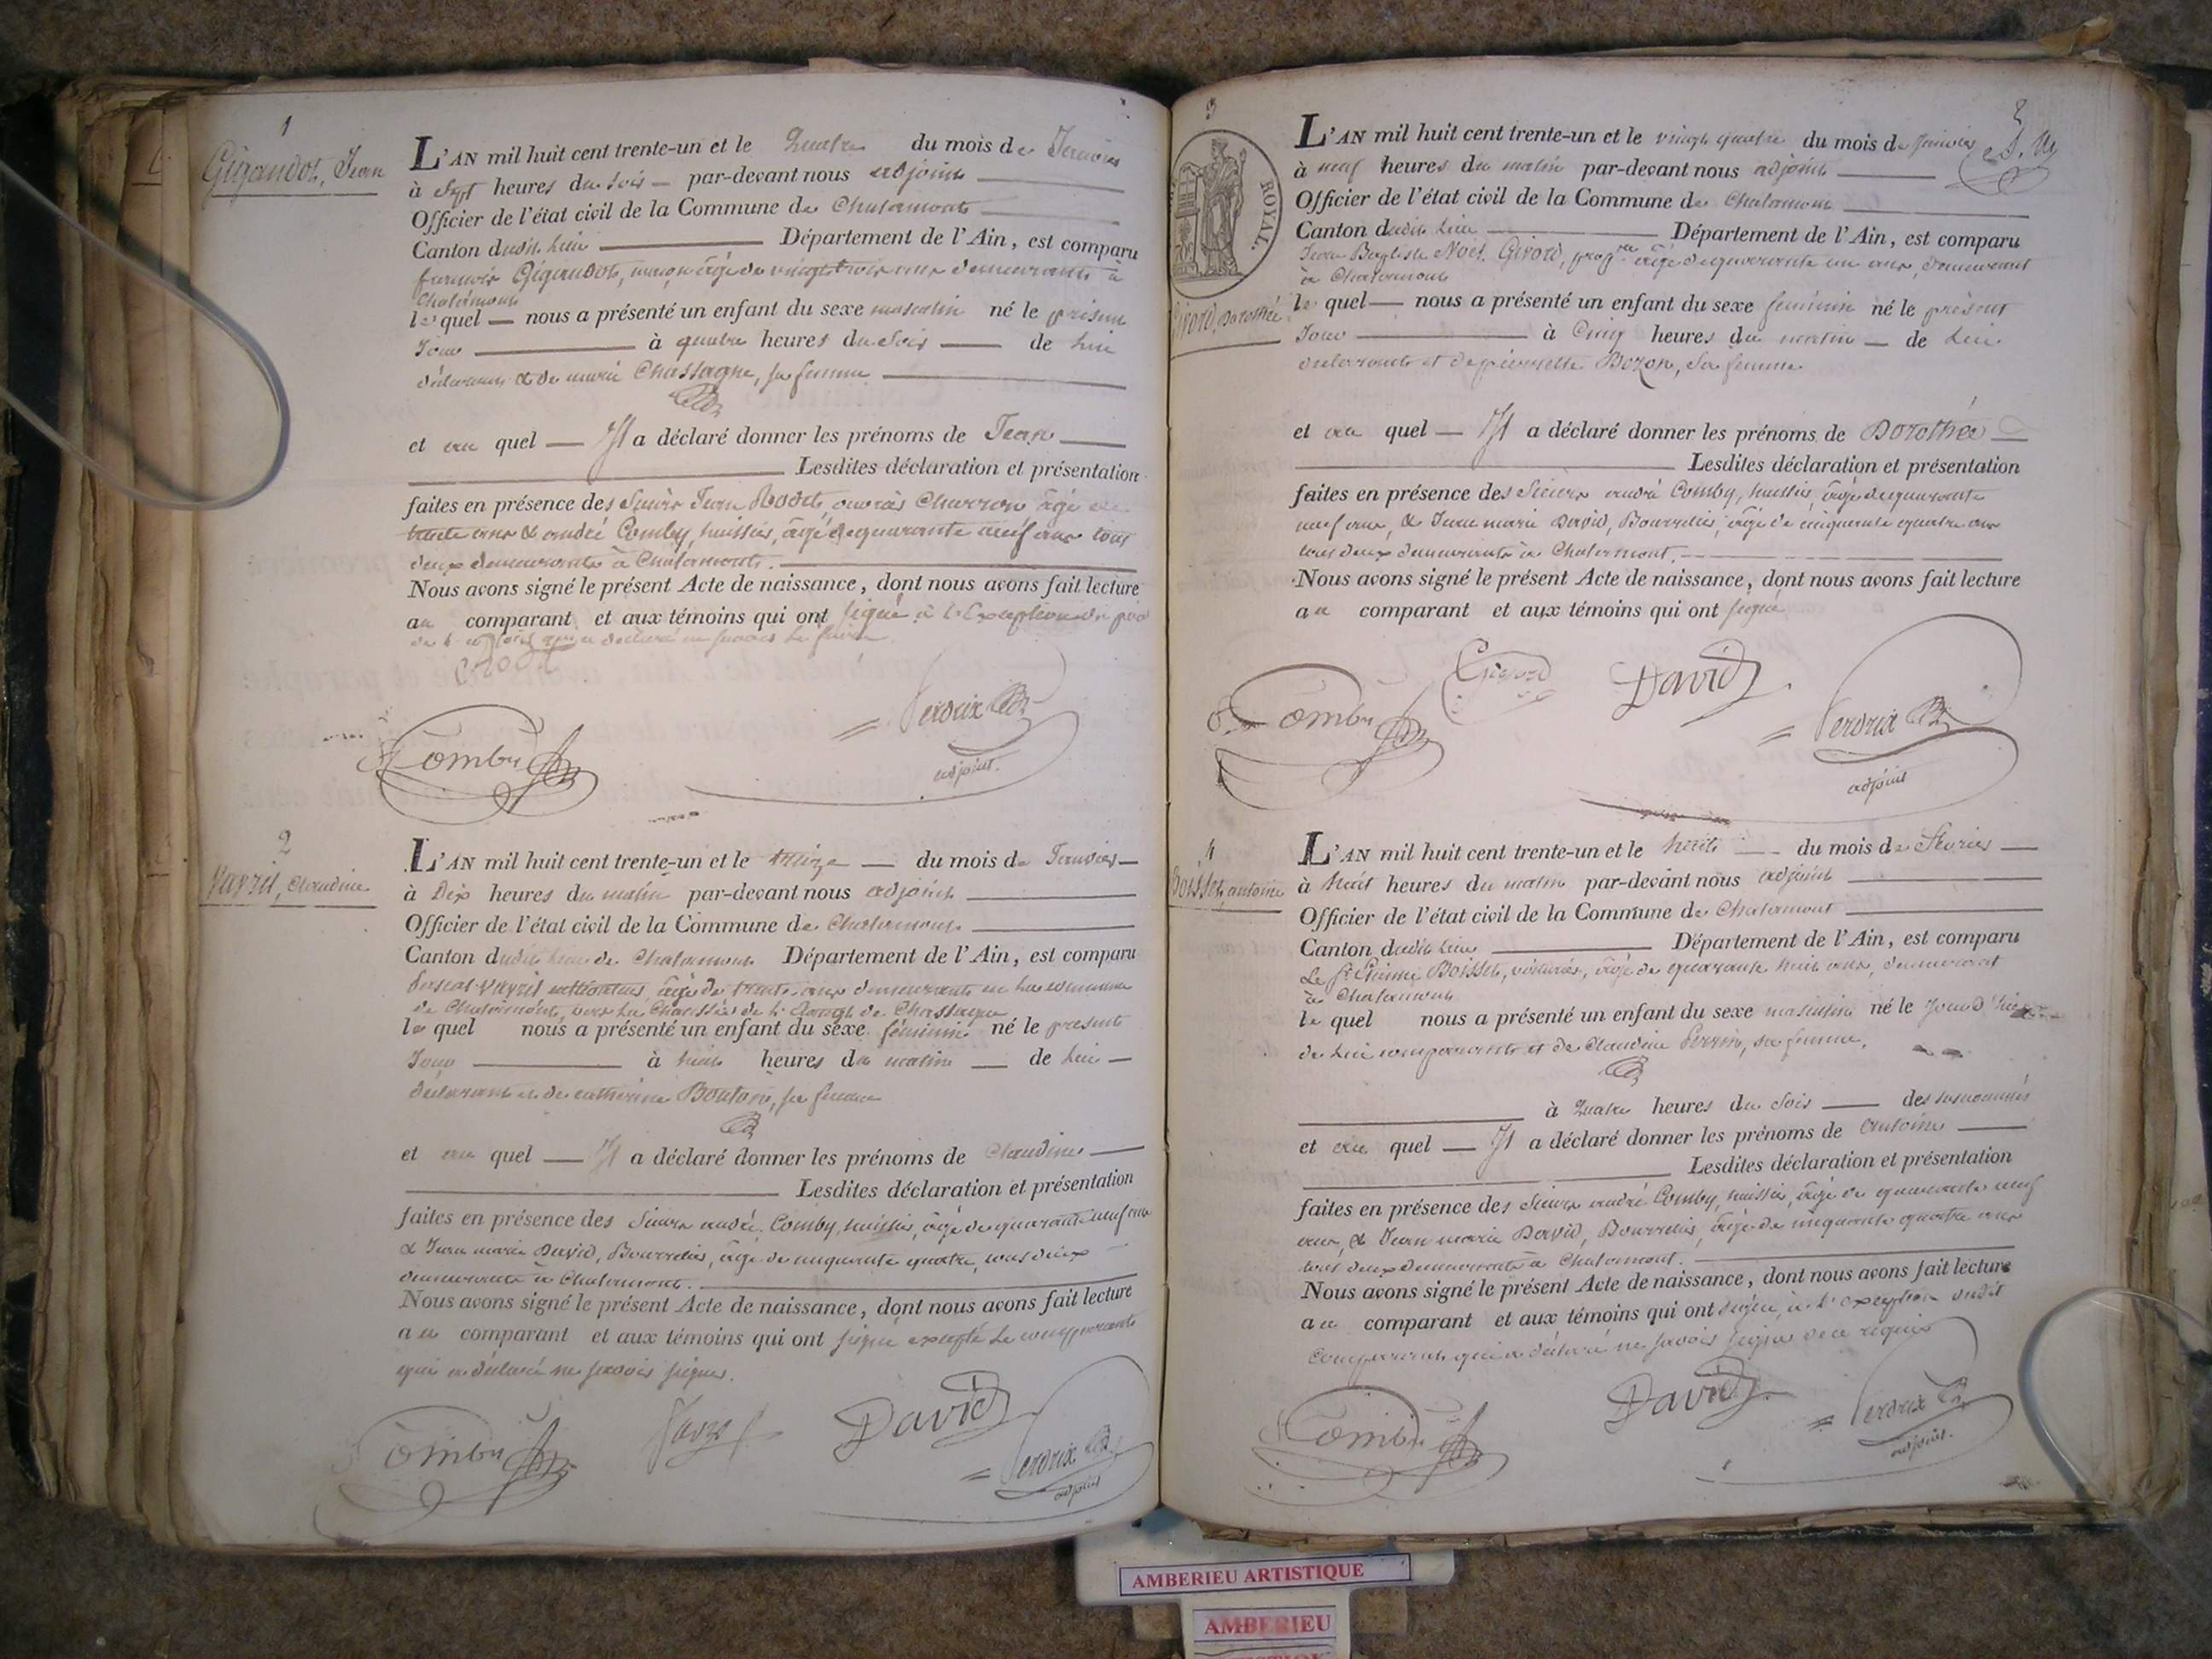 1
Gigandot, Jean
L'AN mil huit cent trente-un et le Quatre du mois de Janvier
à Sept heures du soir par-devant nous adjoint
Officier de l'état civil de la Commune de Chalamont
Canton dudit lieu Département de l'Ain, est comparu
françois Gigandot, maçon âgé de vingt trois ans demeurant à
Chalamont
lequel nous a présenté un enfant du sexe masculin né le présent
Jour à quatre heures du soir de lui
déclarant & de marie Chassagne, sa femme
et au quel Il a déclaré donner les prénoms de Jean
Lesdites déclaration et présentation
faites en présence des Sieurs Jean Rodet, ouvrier Charron âgé de
trente ans & andré Comby, huissier, âgé de quarante neuf ans tous
deux demeurants à Chalamont.
Nous avons signé le présent Acte de naissance, dont nous avons fait lecture
au comparant et aux témoins qui ont signé à l'exception du père
de l'enfant qui a déclaré ne savoir le faire
Rodet
Comby
Perdrix
adjoint.
2
Vayzit, Claudine
L'AN mil huit cent trente-un et le treize du mois de Janvier
à Dix heures du matin par-devant nous adjoint
Officier de l'état civil de la Commune de Chalamont
Canton dudit lieu de Chalamont Département de l'Ain, est comparu
âgé de trente ans demeurant en la commune
de Chalamont, vers la Chaussée de l'Etang de Chassagne
lequel nous a présenté un enfant du sexe féminin né le présent
Jour à huit heures du matin de lui
déclarant et de catherine Bouton, sa femme
et au quel Il a déclaré donner les prénoms de Claudine
Lesdites déclaration et présentation
faites en présence des Sieurs andré Comby, huissier, âgé de quarante neuf ans
& Jean marie David, Bourrelier, âgé de cinquante quatre, tous deux
demeurants à Chalamont.
Nous avons signé le présent Acte de naissance, dont nous avons fait lecture
au comparant et aux témoins qui ont signé excepté le comparant
qui a déclaré ne savoir signer.
Comby
David
Perdrix
adjoint
3
2
ROYAL.
Girord, Dorothée
L'AN mil huit cent trente-un et le vingt quatre du mois de Janvier
à neuf heures du matin par-devant nous adjoint
Officier de l'état civil de la Commune de Chalamont
Canton dudit lieu Département de l'Ain, est comparu
Jean Baptiste Noël Girord, prop.re âgé de quarante un ans, demeurant
à Chalamont
lequel nous a présenté un enfant du sexe féminin né le présent
Jour à Cinq heures du matin de lui
déclarant et de pierrette Bozon, sa femme
et au quel Il a déclaré donner les prénoms de Dorothée
Lesdites déclaration et présentation
faites en présence des Sieurs andré Comby, huissier, âgé de quarante
neuf ans, & Jean marie David, Bourrelier, âgé de cinquante quatre ans
tous deux demeurants à Chalamont.
Nous avons signé le présent Acte de naissance, dont nous avons fait lecture
au comparant et aux témoins qui ont signé
Comby
Girord
David
Perdrix
adjoint
4
Boisset, antoine
L'AN mil huit cent trente-un et le huit du mois de Février
à huit heures du matin par-devant nous adjoint
Officier de l'état civil de la Commune de Chalamont
Canton dudit lieu Département de l'Ain, est comparu
Le Sr. Etienne Boisset, voiturier, âgé de quarante huit ans, demeurant
à Chalamont
lequel nous a présenté un enfant du sexe masculin né le Jour d'hier
de lui comparant et de Claudine Perrin, sa femme,
à Quatre heures du soir des susnommés
et au quel Il a déclaré donner les prénoms de antoine
Lesdites déclaration et présentation
faites en présence des Sieurs andré Comby, huissier, âgé de quarante neuf
ans, & Jean marie David, Bourrelier, âgé de cinquante quatre ans
tous deux demeurants à Chalamont.
Nous avons signé le présent Acte de naissance, dont nous avons fait lecture
au comparant et aux témoins qui ont signé, à l'exception dudit
comparant qui a déclaré ne savoir signer de ce requis
Comby
David
Perdrix
adjoint.
AMBERIEU ARTISTIQUE
AMBERIEU